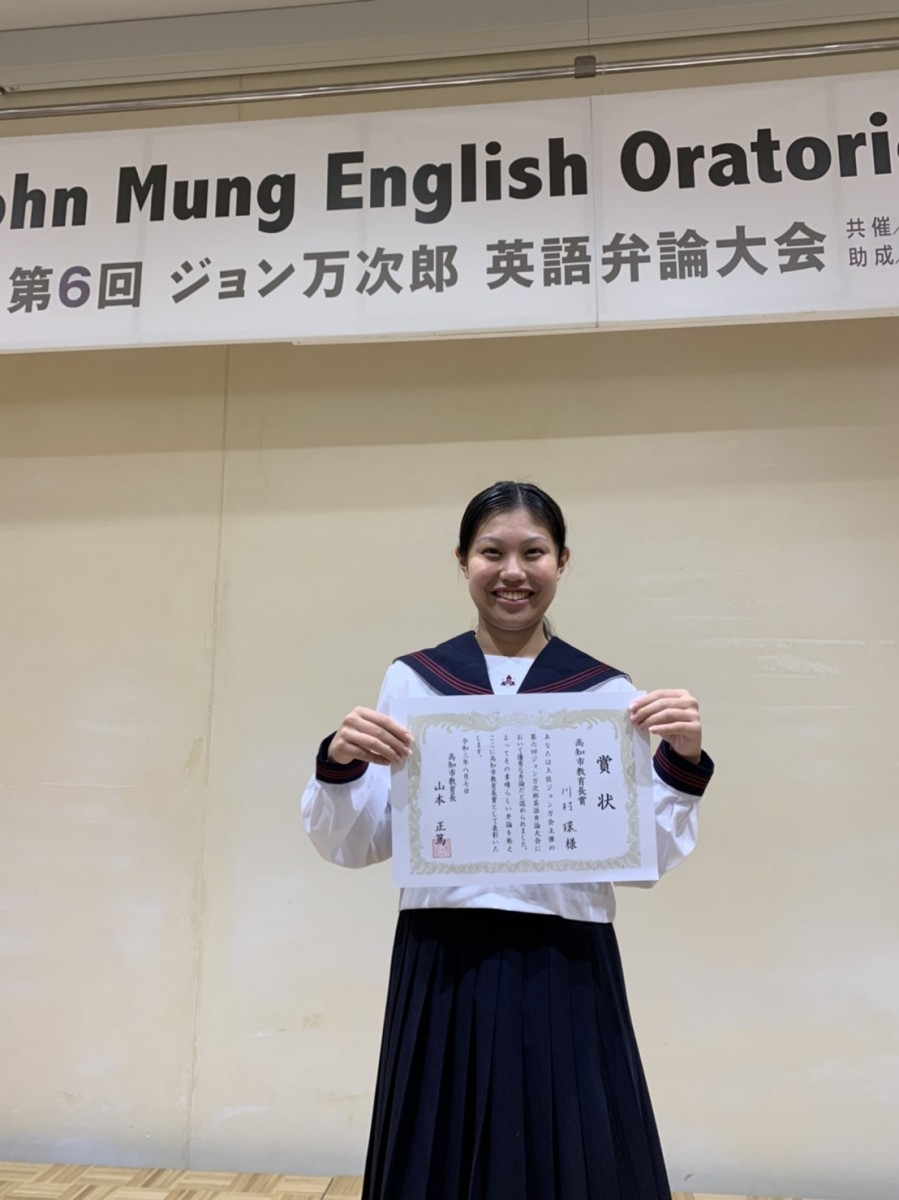 ohn Mung English Oratori
第6回 ジョン万次郎 英語弁論大会
共催
助成
賞状
高知市教育長賞
川村 環 様
あなたは土佐ジョン万会主催の
第六回ジョン万次郎英語弁論大会に
おいて優秀な弁論だと認められました。
よってその素晴らしい弁論を称え
ここに高知市教育長賞として表彰いた
します。
令和三年八月七日
高知市教育長
山本 正篤